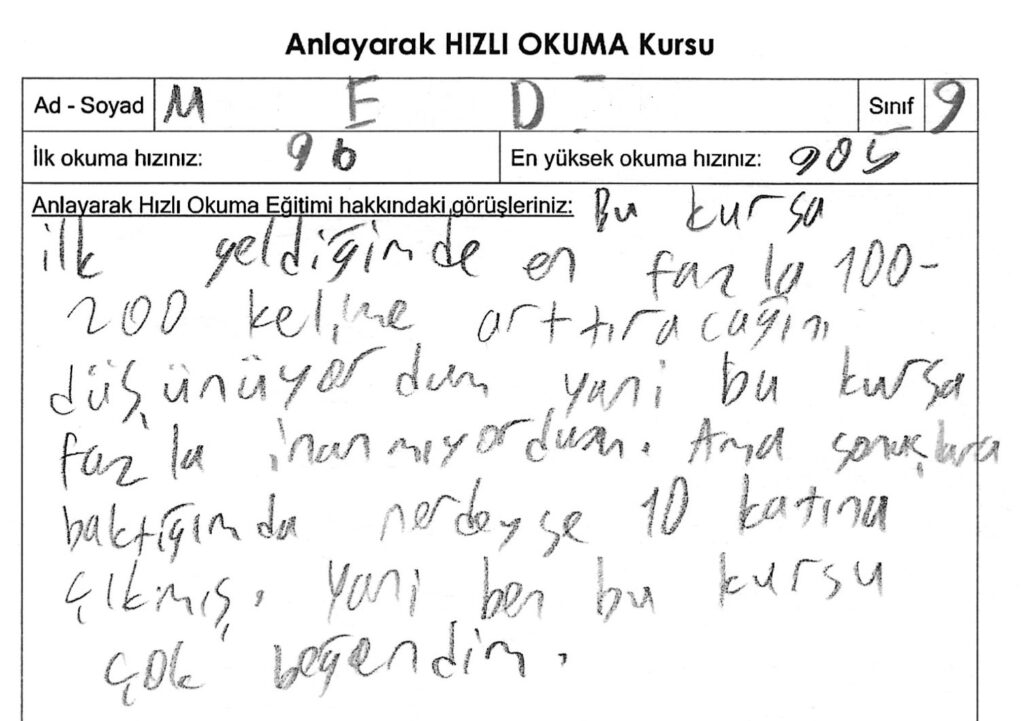 Anlayarak HIZLI OKUMA Kursu
Ad - Soyad M E D Sınıf 9
İlk okuma hızınız: 96 En yüksek okuma hızınız: 905
Anlayarak Hızlı Okuma Eğitimi hakkındaki görüşleriniz: Bu kursa
ilk geldiğimde en fazla 100-
200 kelime arttıracağını
düşünüyordum yani bu kursa
fazla inanmıyordum. Ama sonuçlara
baktığımda nerdeyse 10 katına
çıkmış. Yani ben bu kursu
çok beğendim.